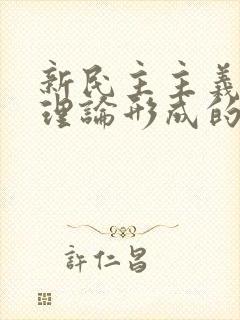 新民主主義
理論形成的
許仁昌